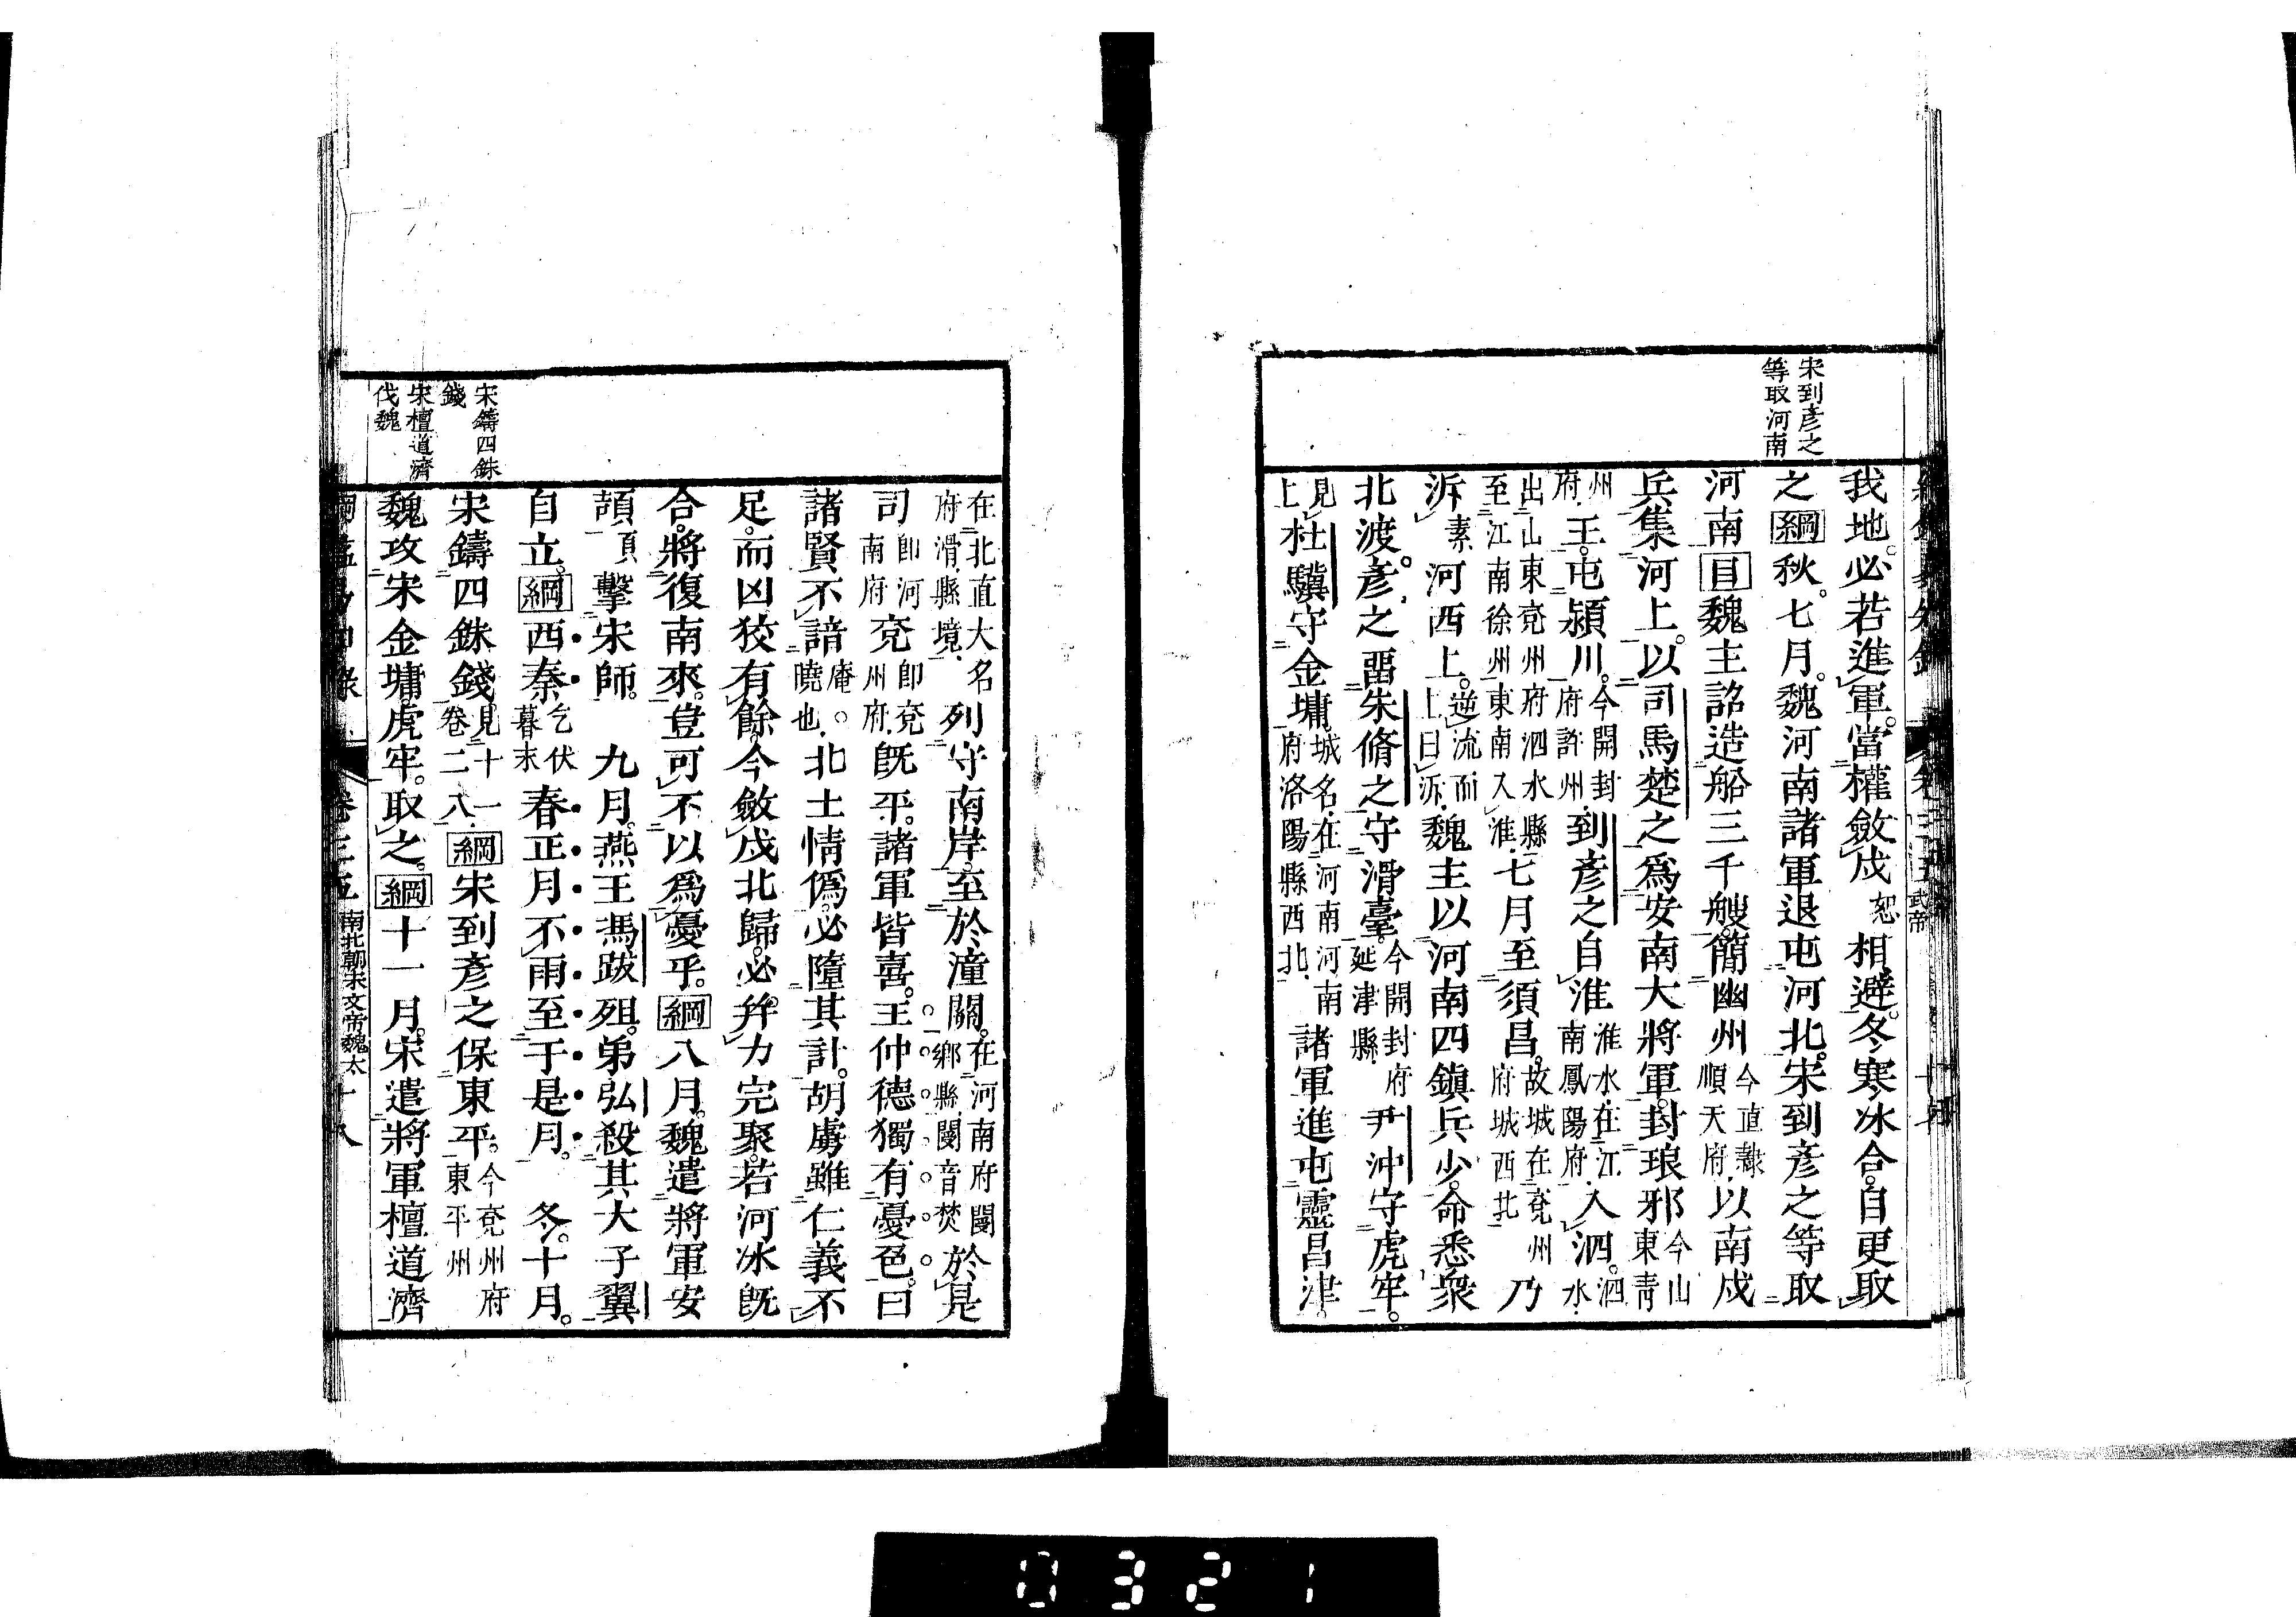 宋到彥之
等取河南
我地。必若進軍。當權斂戍恕相避。冬寒冰合。自更取
之綱秋。七月。魏河南諸軍退屯河北。宋到彥之等取
河南目魏主詔造船三千艘。簡幽州今直隸順天府以南戍
兵集河上。以司馬楚之爲安南大將軍。封琅邪今山東青
州府王。屯潁川。今開封府許州到彥之自淮淮水在江南鳳陽府入泗。泗水
出山東兗州府泗水縣至江南徐州東南入淮七月至須昌。故城在兗州府城西北乃
泝素河西上。逆流而上曰泝魏主以河南四鎮兵少。命悉衆
北渡。彥之畱朱脩之守滑臺。今開封府延津縣尹沖守虎牢。
見上杜驥守金墉。城名在河南府洛陽縣西北河南諸軍進屯靈昌津。
在北直大名府滑縣境列守南岸。至於潼關。在河南府閿鄉縣閿音焚於是
司卽河南府兗卽兗州府旣平。諸軍皆喜。王仲德獨有憂色。曰
諸賢不諳庵。曉也北土情僞。必墮其計。胡虜雖仁義不
足。而凶狡有餘。今斂戍北歸。必幷力完聚。若河冰旣
合。將復南來。豈可不以爲憂乎。綱八月。魏遣將軍安
頡頁擊宋師。 九月。燕王馮跋殂。弟弘殺其大子翼
自立。綱西秦乞伏暮末春正月不雨至于是月。 冬。十月。
宋鑄四銖錢。見十一卷二八綱宋到彥之保東平。今兗州府東平州
魏攻宋金墉。虎牢。取之。綱十一月。宋遣將軍檀道濟
宋鑄四銖
錢
宋檀道濟
伐魏
卷三五 南北朝宋文帝魏太 十八
0321